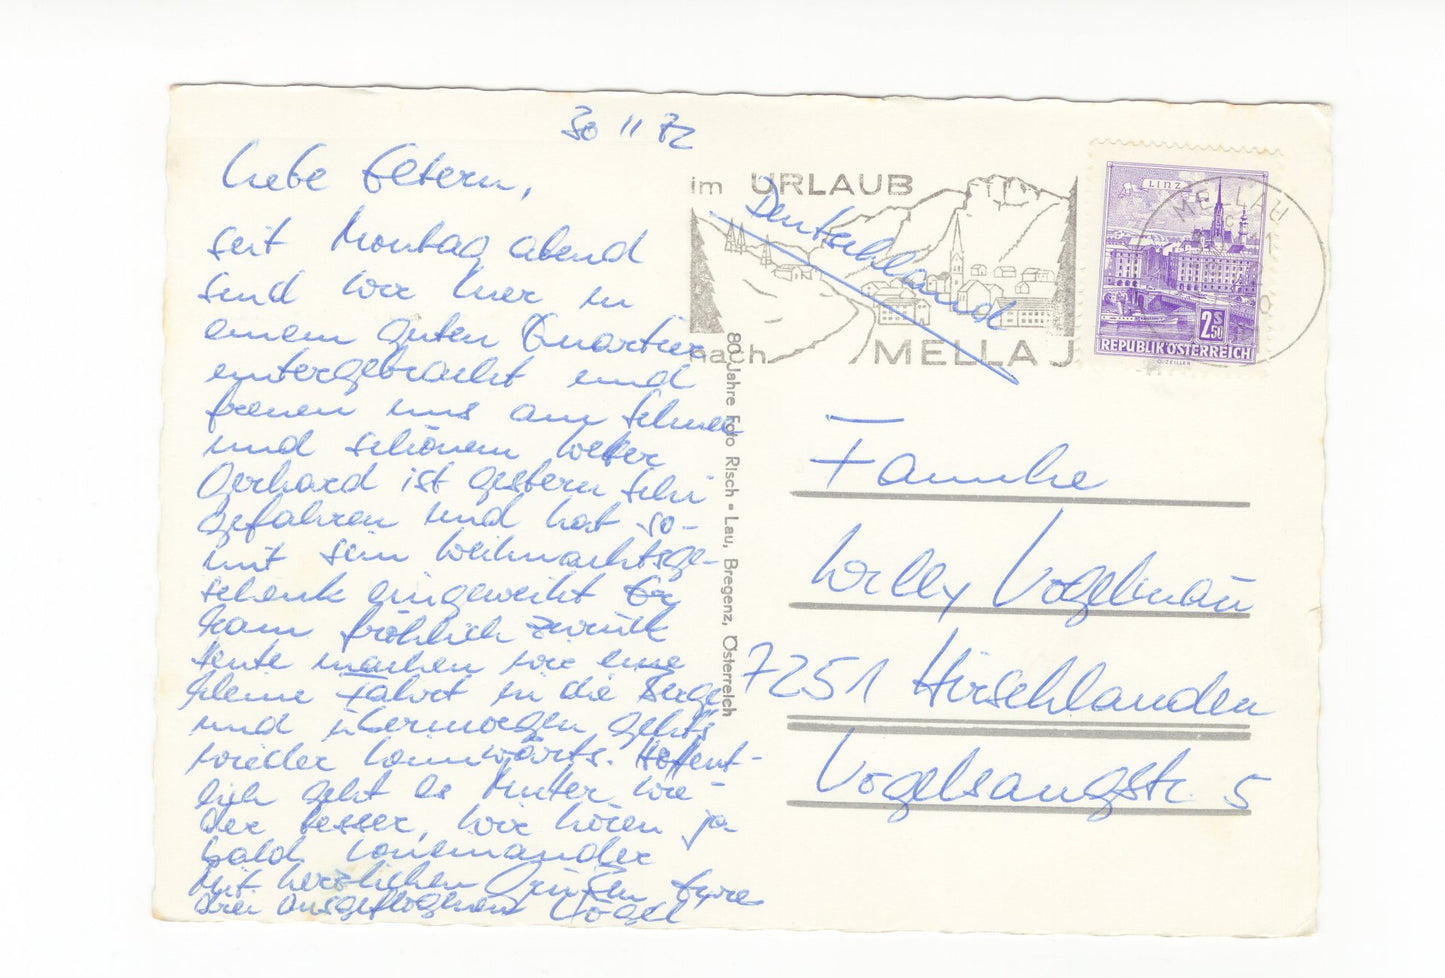 30 11 72
Liebe Eltern,
seit Montag abend
sind wir hier in
einem guten Quartier
untergebracht und
freuen uns am Schnee
und schönem Wetter
Gerhard ist gestern Schi
gefahren und hat so-
mit sein Weihnachtsge-
schenk eingeweiht Er
kam fröhlich zurück
Heute machen wir eine
kleine Fahrt in die Berge
und übermorgen gehts
wieder heimwärts. Hoffent-
lich geht es Mutter wie-
der besser, wir hören ja
bald voneinander
Mit herzlichen Grüßen Eure
drei ausgeflogenen Vögel
im URLAUB
nach MELLAU
Deutschland
MELLAU
LINZ
2S50
REPUBLIK ÖSTERREICH
80 Jahre Foto Risch • Lau, Bregenz, Österreich
Familie
Willy Vogelmän
7251 Hirschlanden
Vogelsangstr. 5